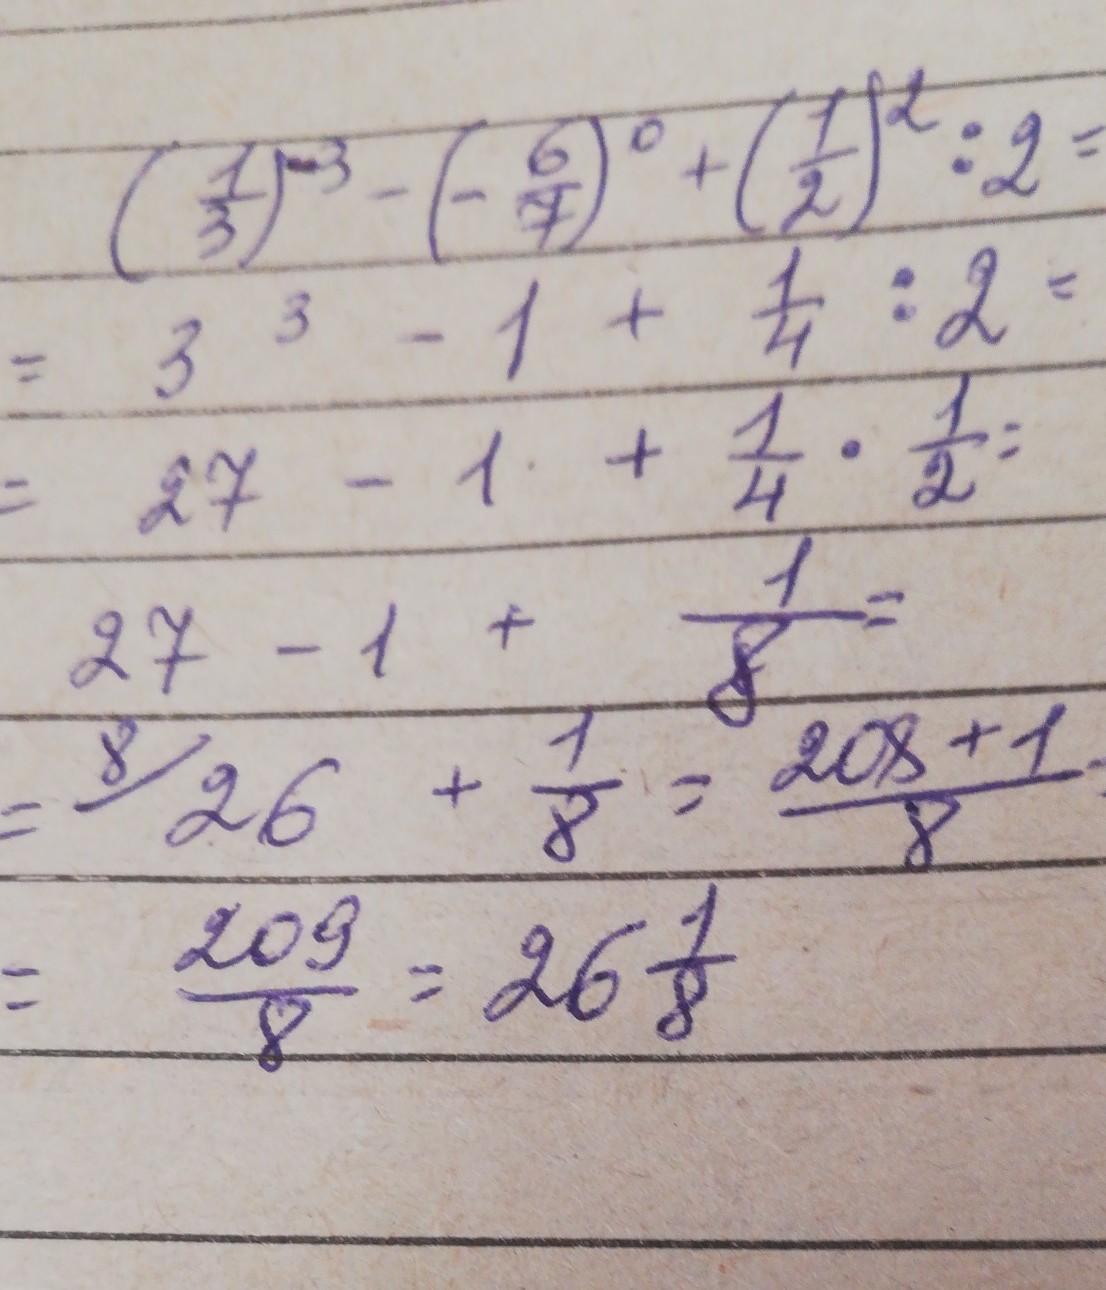 (1/3)⁻³ - (- 6/7)⁰ + (1/2)² : 2 =
= 3³ - 1 + 1/4 : 2 =
= 27 - 1 + 1/4 · 1/2 =
27 - 1 + 1/8 =
= 8/ 26 + 1/8 = 208 + 1/8 =
= 209/8 = 26 1/8